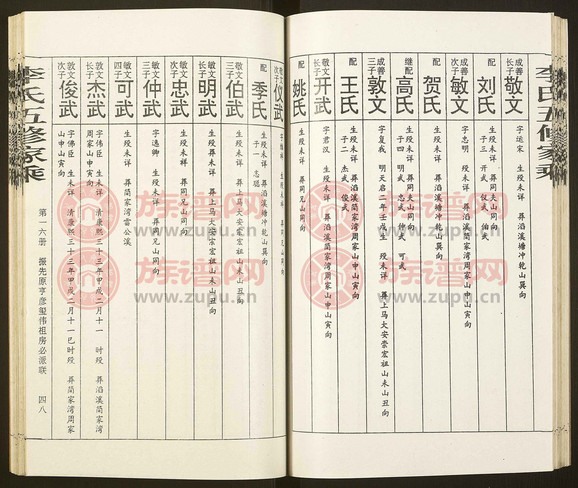 李氏五修家乘
成善长子 敬文 字运宋 生殁未详 葬滔溪塘冲乾山巽向
配 刘氏 生殁未详 葬同夫山同向
子三 开武 仪武 伯武
成善次子 敏文 字忠明 殁未详 葬滔溪简家湾周家山申山寅向
配 贺氏
继配 高氏 生殁未详 葬同夫山同向
子四 明武 忠武 仲武 可武
成善三子 敦文 字复我 明天启二年壬戌生 殁未详 葬上马大安宗宏祖山未山丑向
配 王氏 生殁未详
子二 杰武 俊武
敬文长子 开武 字君汉 生殁未详 葬滔溪简家湾周家山申山寅向
配 姚氏 生殁未详 葬滔溪塘冲乾山巽向
敬文次子 仪武
配 季氏 生殁未详 葬滔溪塘冲乾山巽向
子一 志聪
敬文三子 伯武 生殁未详 葬上马大安宗宏祖山未山丑向
敏文长子 明武 生殁未详 葬上马大安宗宏祖山未山丑向
敏文次子 忠武 字运祥 生殁未详 葬同兄山同向
敏文三子 仲武 字逸卿 生殁未详 葬同兄山同向
敏文四子 可武 生殁未详 葬简家湾雷公溪
敦文长子 杰武 字伟臣 生未详 清康熙三十三年甲戌二月十一 时殁 葬滔溪简家湾
周家山申山寅向
敦文次子 俊武 字佛臣 生未详 清康熙三十三年甲戌二月十一巳时殁 葬简家湾周家
山申山寅向
李氏五修家乘
第一六册 振先原亨彦玺伟祖房必派联 四八
族谱网
www.zupu.cn
族谱网
www.zupu.cn